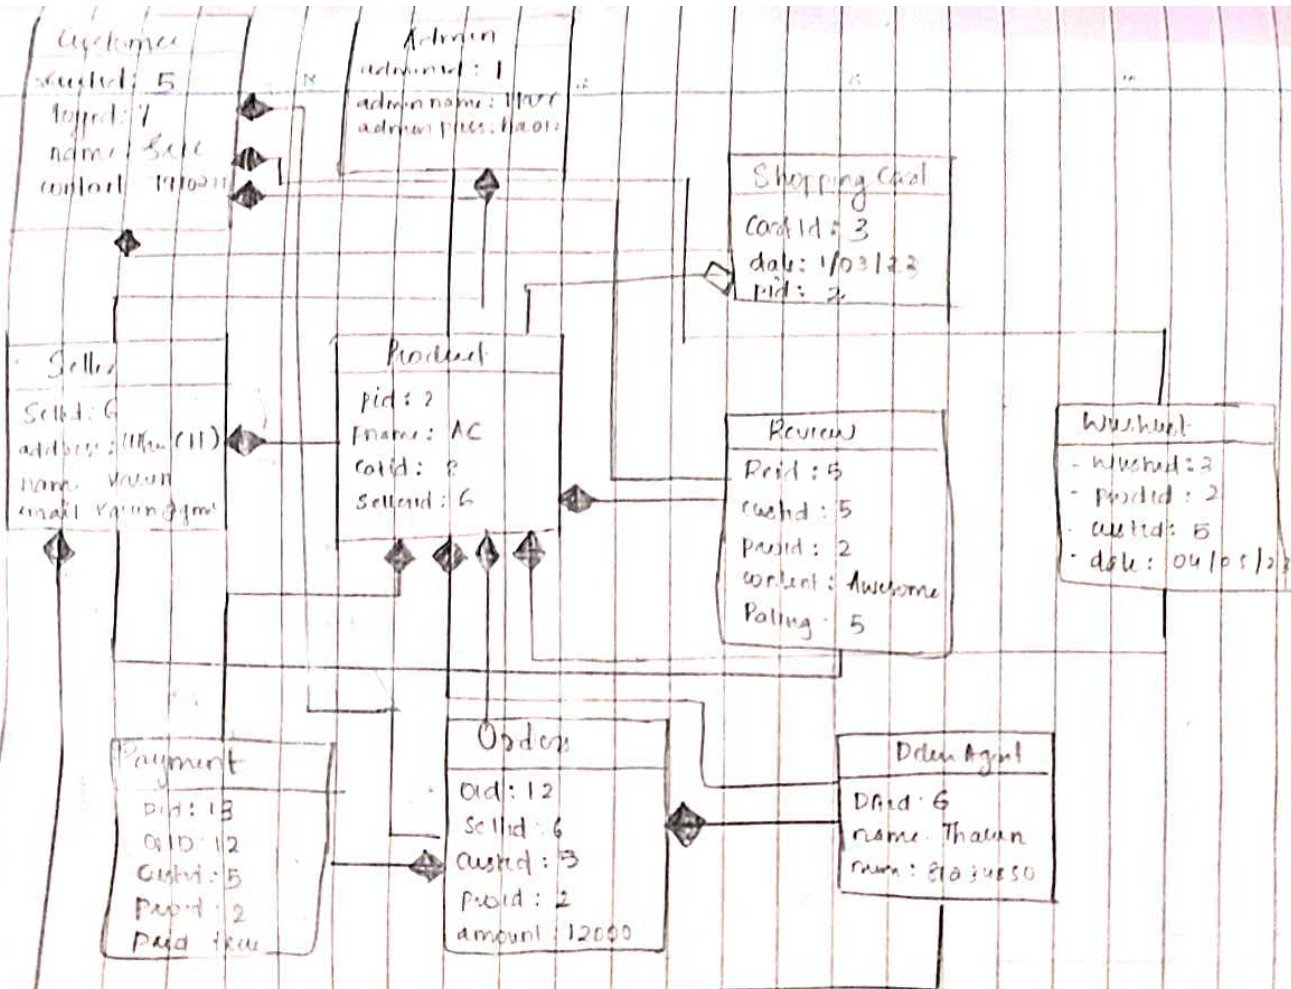 Customer
custid: 5
logid: 7
name:
contact
Admin
adminid: 1
admin name:
admin pass:
Shopping Card
Cartid: 3
date: 1/03/23
pid: 2
Seller
Sellid: 6
address:
name varun
email varun@gm
Product
pid: 2
pname: AC
catid: 8
Sellerid: 6
Review
Reid: 5
custid: 5
prodid: 2
content: Awesome
Rating - 5
Wishlist
- wishid: 3
- prodid: 2
- custid: 5
- date: 04/05/23
Payment
pid: 13
12
Custid: 5
Prodid: 2
paid true
Orders
oid: 12
Sellid: 6
Custid: 5
prodid: 2
amount: 12000
Delen Agent
DAid: 6
name.
num: